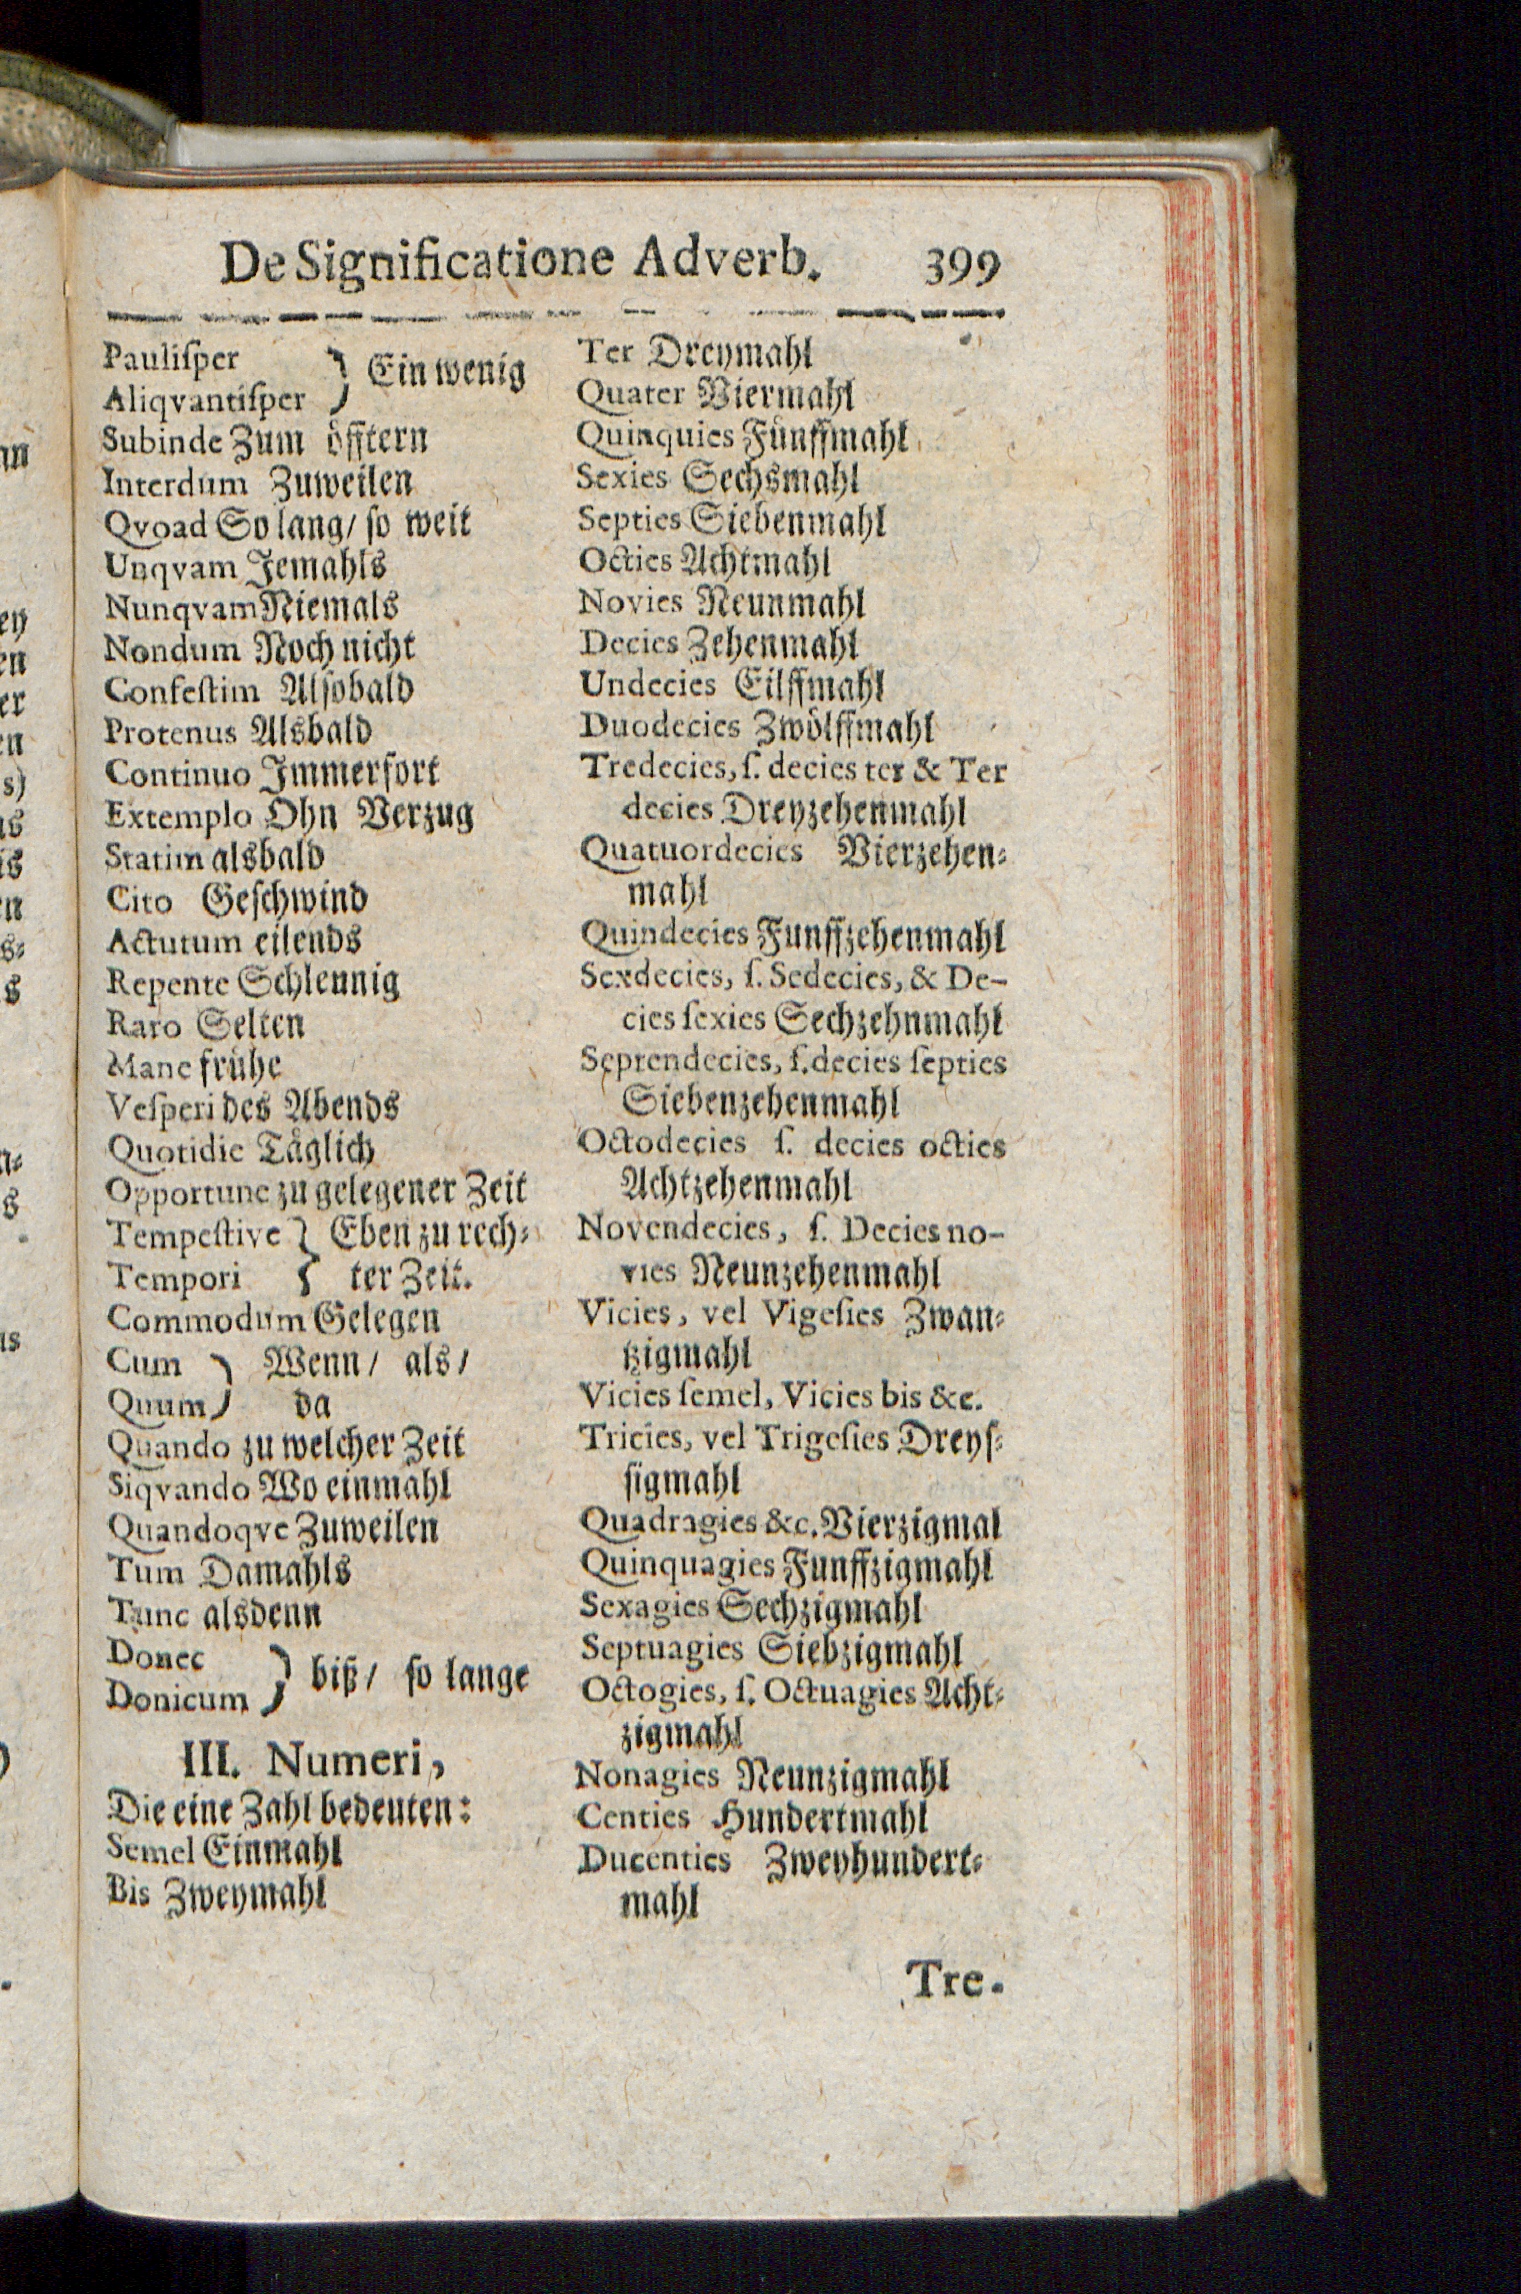 De Significatione Adverb. 399
Pauliſper
Aliqvantiſper } Ein wenig
Subinde Zum öfftern
Interdum Zuweilen
Qvoad So lang / ſo weit
Unqvam Jemahls
Nunqvam Niemals
Nondum Noch nicht
Confeſtim Alſobald
Protenus Alsbald
Continuo Immerfort
Extemplo Ohn Verzug
Statim alsbald
Cito Geſchwind
Actutum eilends
Repente Schleunig
Raro Selten
Mane frühe
Veſperi des Abends
Quotidie Täglich
Opportune zu gelegener Zeit
Tempeſtive } Eben zu rech-
Tempori } ter Zeit.
Commodum Gelegen
Cum } Wenn / als /
Quum } da
Quando zu welcher Zeit
Siqvando Wo einmahl
Quandoqve Zuweilen
Tum Damahls
Tunc alsdenn
Donec
Donicum } biß / ſo lange
III. Numeri,
Die eine Zahl bedeuten:
Semel Einmahl
Bis Zweymahl
Ter Dreymahl
Quater Viermahl
Quinquies Fünffmahl
Sexies Sechsmahl
Septies Siebenmahl
Octies Achtmahl
Novies Neunmahl
Decies Zehenmahl
Undecies Eilffmahl
Duodecies Zwölffmahl
Tredecies, ſ. decies ter & Ter
decies Dreyzehenmahl
Quatuordecies Vierzehen-
mahl
Quindecies Funffzehenmahl
Sexdecies, ſ. Sedecies, & De-
cies ſexies Sechzehnmahl
Septendecies, ſ. decies ſepties
Siebenzehenmahl
Octodecies ſ. decies octies
Achtzehenmahl
Novendecies, ſ. Decies no-
vies Neunzehenmahl
Vicies, vel Vigeſies Zwan-
tzigmahl
Vicies ſemel, Vicies bis &c.
Tricies, vel Trigeſies Dreyſ-
ſigmahl
Quadragies &c. Vierzigmal
Quinquagies Funffzigmahl
Sexagies Sechzigmahl
Septuagies Siebzigmahl
Octogies, ſ. Octuagies Acht-
zigmahl
Nonagies Neunzigmahl
Centies Hundertmahl
Ducenties Zweyhundert-
mahl
Tre-